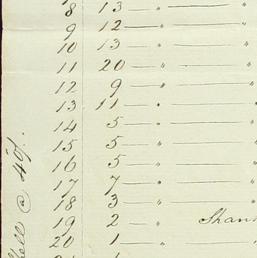 8 13 — " — "
9 12 — " — "
10 13 — " — "
11 20 — " — "
12 9 — " — "
13 11 — " — "
14 5 — " — "
15 5 — " — "
16 5 — " — "
17 7 — " — "
18 3 — " — "
19 2 — " Shan
20 1 — " — "
@ 40/.